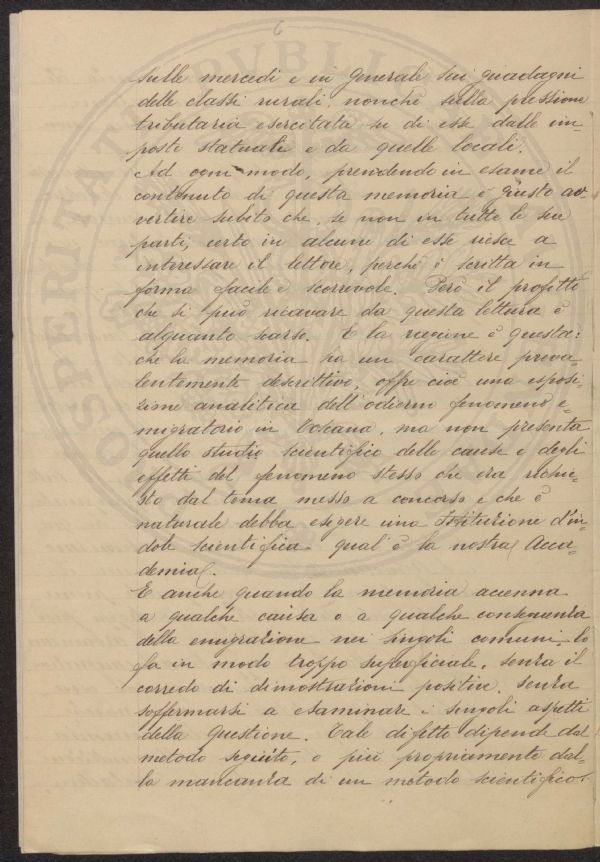 6
sulle mercedi e in generale sui guadagni
delle classi rurali, nonchè sulla pressione
tributaria esercitata su di esse dalle im-
poste statuali e da quelle locali.
Ad ogni modo, prendendo in esame il
contenuto di questa memoria è giusto av
vertire subito che, se non in tutte le sue
parti, certo in alcune di esse riesce a
interessare il lettore, perchè è scritta in
forma facile e scorrevole. Però il profitto
che si può ricavare da questa lettura è
alquanto scarso. E la ragione è questa:
che la memoria ha un carattere preva
lentemente descrittivo, offre cioè una esposi-
zione analitica dell'odierno fenomeno e-
migratorio in Toscana, ma non presenta
quello studio scientifico delle cause e degli
effetti del fenomeno stesso che era richie-
sto dal tema messo a concorso e che è
naturale debba esigere una Istituzione d'in-
dole scientifica qual'è la nostra Acca-
demia.
E anche quando la memoria accenna
a qualche causa o a qualche conseguenza
della emigrazione nei singoli comuni, lo
fa in modo troppo superficiale, senza il
corredo di dimostrazioni positive, senza
soffermarsi a esaminare i singoli aspetti
della questione. Tale difetto dipende dal
metodo seguito, o più propriamente dal-
la mancanza di un metodo scientifico.
PROSPERITATI PVBLICAE